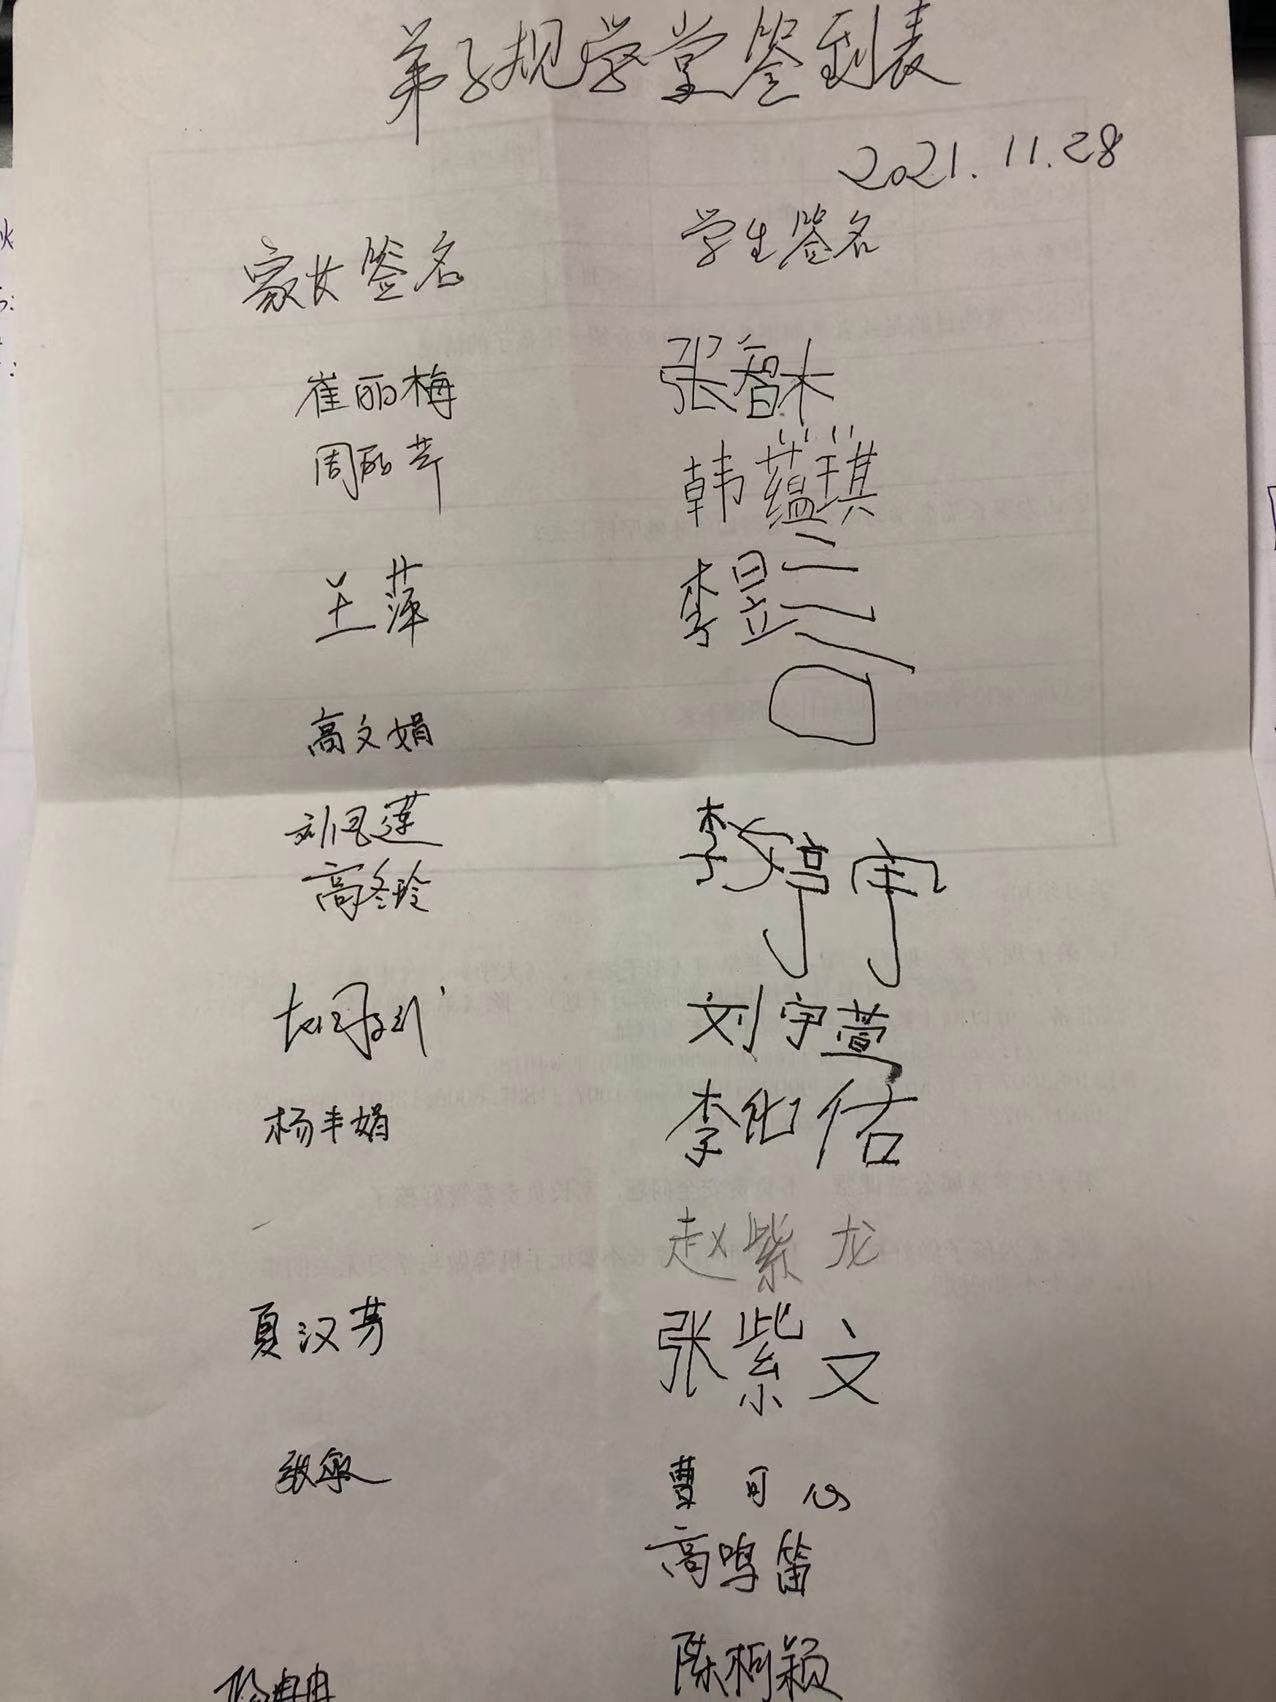 弟子规学堂签到表
2021.11.28
家长签名 学生签名
崔丽梅 张智木
周丽芹 韩蕴琪
王萍 李昱
高文娟
刘凤莲 李婷宇
高冬玲
刘宇萱
杨丰娟 李 佑
赵紫龙
夏汉芳 张紫文
张敏 曹可心
高鸣笛
陈柯颖